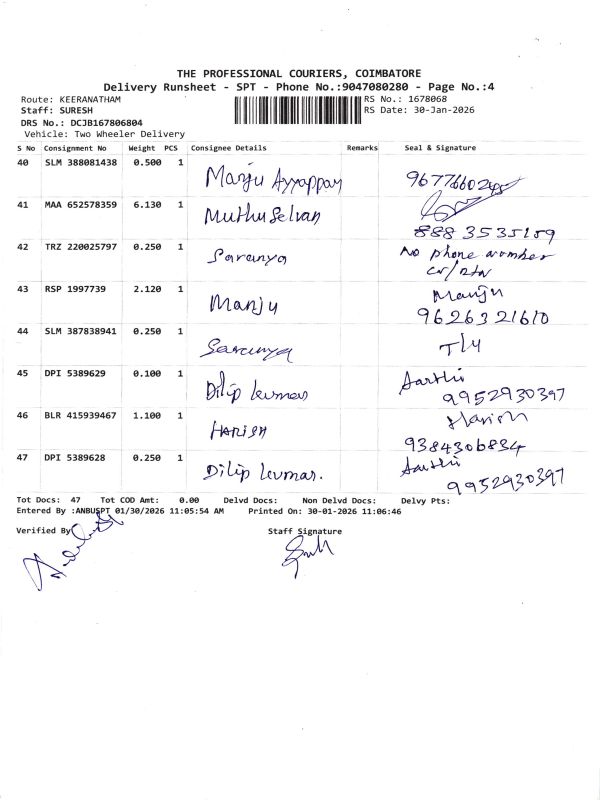 THE PROFESSIONAL COURIERS, COIMBATORE
Delivery Runsheet - SPT - Phone No.:9047080280 - Page No.:4
Route: KEERANATHAM RS No.: 1678068
Staff: SURESH RS Date: 30-Jan-2026
DRS No.: DCJB167806804
Vehicle: Two Wheeler Delivery
S No Consignment No Weight PCS Consignee Details Remarks Seal & Signature
40 SLM 388081438 0.500 1 Manju Ayyappan
41 MAA 652578359 6.130 1 Muthu Selvan
888 3535159
42 TRZ 220025797 0.250 1 Saranya No phone number
43 RSP 1997739 2.120 1 Manju Manju
9626321610
44 SLM 387838941 0.250 1 Saranya
45 DPI 5389629 0.100 1 Dilip kumar Aarthi
9952930397
46 BLR 415939467 1.100 1 HARISH Harish
9384306834
47 DPI 5389628 0.250 1 Dilip kumar. Aarthi
9952930397
Tot Docs: 47 Tot COD Amt: 0.00 Delvd Docs: Non Delvd Docs: Delvy Pts:
Entered By :ANBUSPT 01/30/2026 11:05:54 AM Printed On: 30-01-2026 11:06:46
Verified By Staff Signature